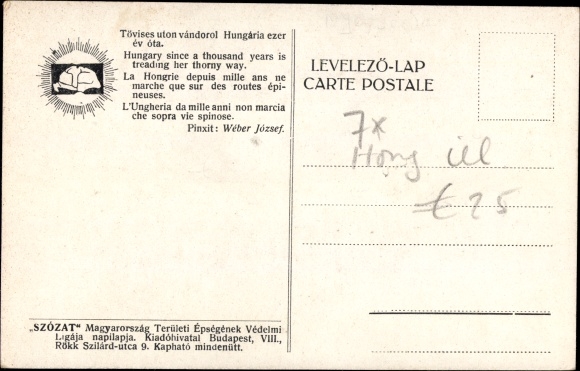 Tövises uton vándorol Hungária ezer
év óta.
Hungary since a thousand years is
treading her thorny way.
La Hongrie depuis mille ans ne
marche que sur des routes épi-
neuses.
L'Ungheria da mille anni non marcia
che sopra vie spinose.
Pinxit: Wéber József.
LEVELEZŐ-LAP
CARTE POSTALE
7x
Hong ill
€ 25
„SZÓZAT“ Magyarország Területi Épségének Védelmi
Ligája napilapja. Kiadóhivatal Budapest, VIII.,
Rökk Szilárd-utca 9. Kapható mindenütt.